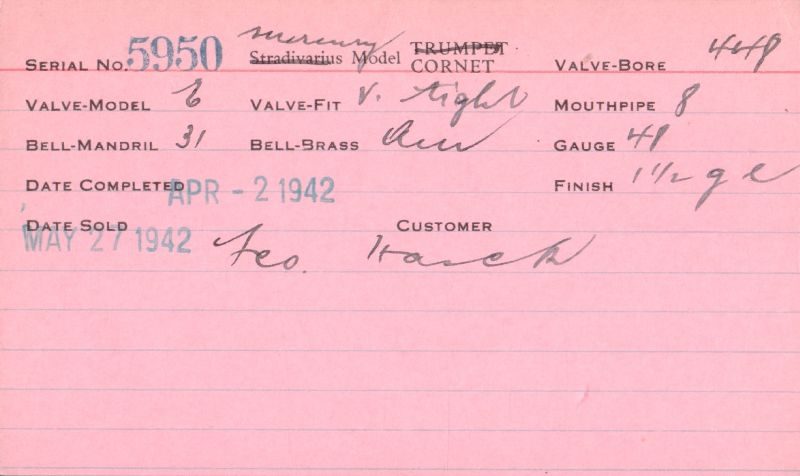 mercury
SERIAL No. 5950 Stradivarius Model TRUMPET CORNET VALVE-BORE 448
VALVE-MODEL 6 VALVE-FIT V. tight MOUTHPIPE 8
BELL-MANDRIL 31 BELL-BRASS GAUGE 48
DATE COMPLETED APR - 2 1942 FINISH 1 1/2 g l
DATE SOLD CUSTOMER
MAY 27 1942 Geo.